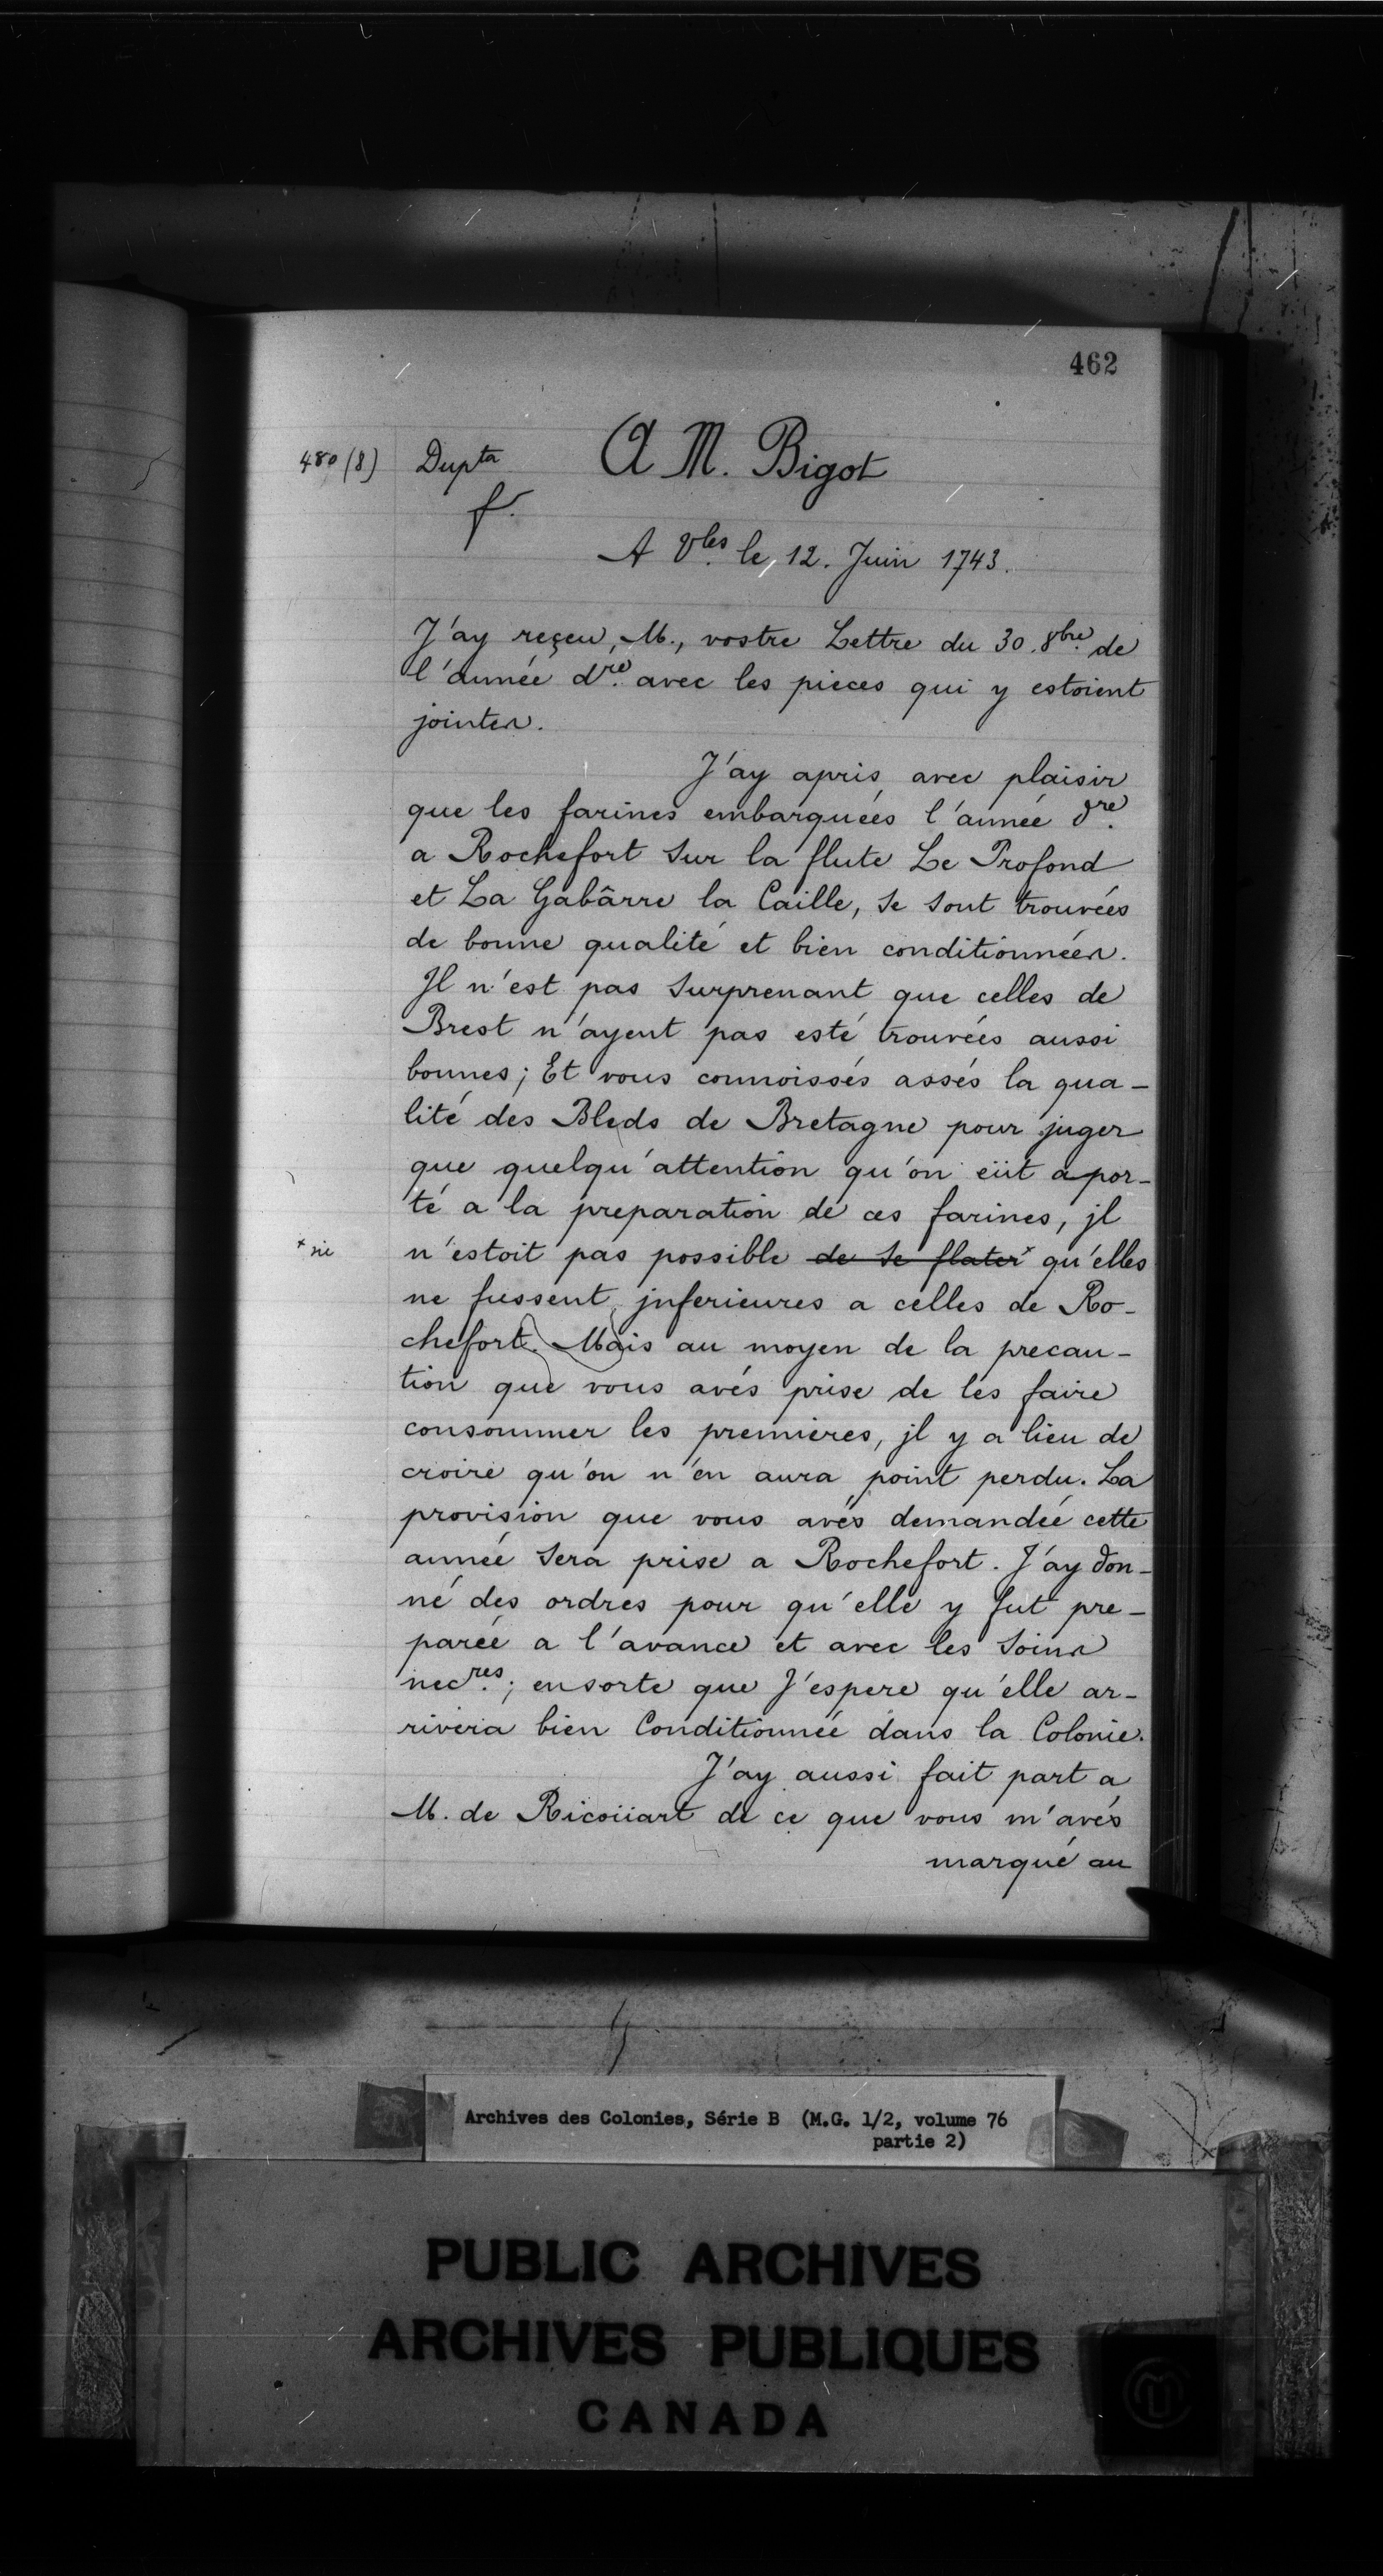 462
480 (8) Dupta A M. Bigot
f.
A Vles. le, 12. Juin 1743.
J'ay reçeu, M., vostre Lettre du 30. 8bre. de
l'année dre. avec les pieces qui y estoient
jointes.
J'ay apris avec plaisir
que les farines embarquées l'année dre.
a Rochefort sur la flute Le Profond
et La Gabârre la Caille, se sont trouvées
de bonne qualité et bien conditionnées.
Il n'est pas surprenant que celles de
Brest n'ayent pas esté trouvées aussi
bonnes; Et vous connoissés assés la qua-
lité des Bleds de Bretagne pour juger
que quelqu'attention qu'on eüt apor-
té a la preparation de ces farines, jl
* sic n'estoit pas possible de se flater* qu'elles
ne fussent jnferieures a celles de Ro-
chefort. Mais au moyen de la precau-
tion que vous avés prise de les faire
consommer les premieres, jl y a lieu de
croire qu'on n'en aura point perdu. La
provision que vous avés demandée cette
année sera prise a Rochefort. J'ay don-
né des ordres pour qu'elle y fut pre-
parée a l'avance et avec les soins
necres.; ensorte que J'espere qu'elle ar-
rivera bien Conditionnée dans la Colonie.
J'ay aussi fait part a
M. de Ricoüart de ce que vous m'avés
marqué au
Archives des Colonies, Série B (M.G. 1/2, volume 76
partie 2)
PUBLIC ARCHIVES
ARCHIVES PUBLIQUES
CANADA